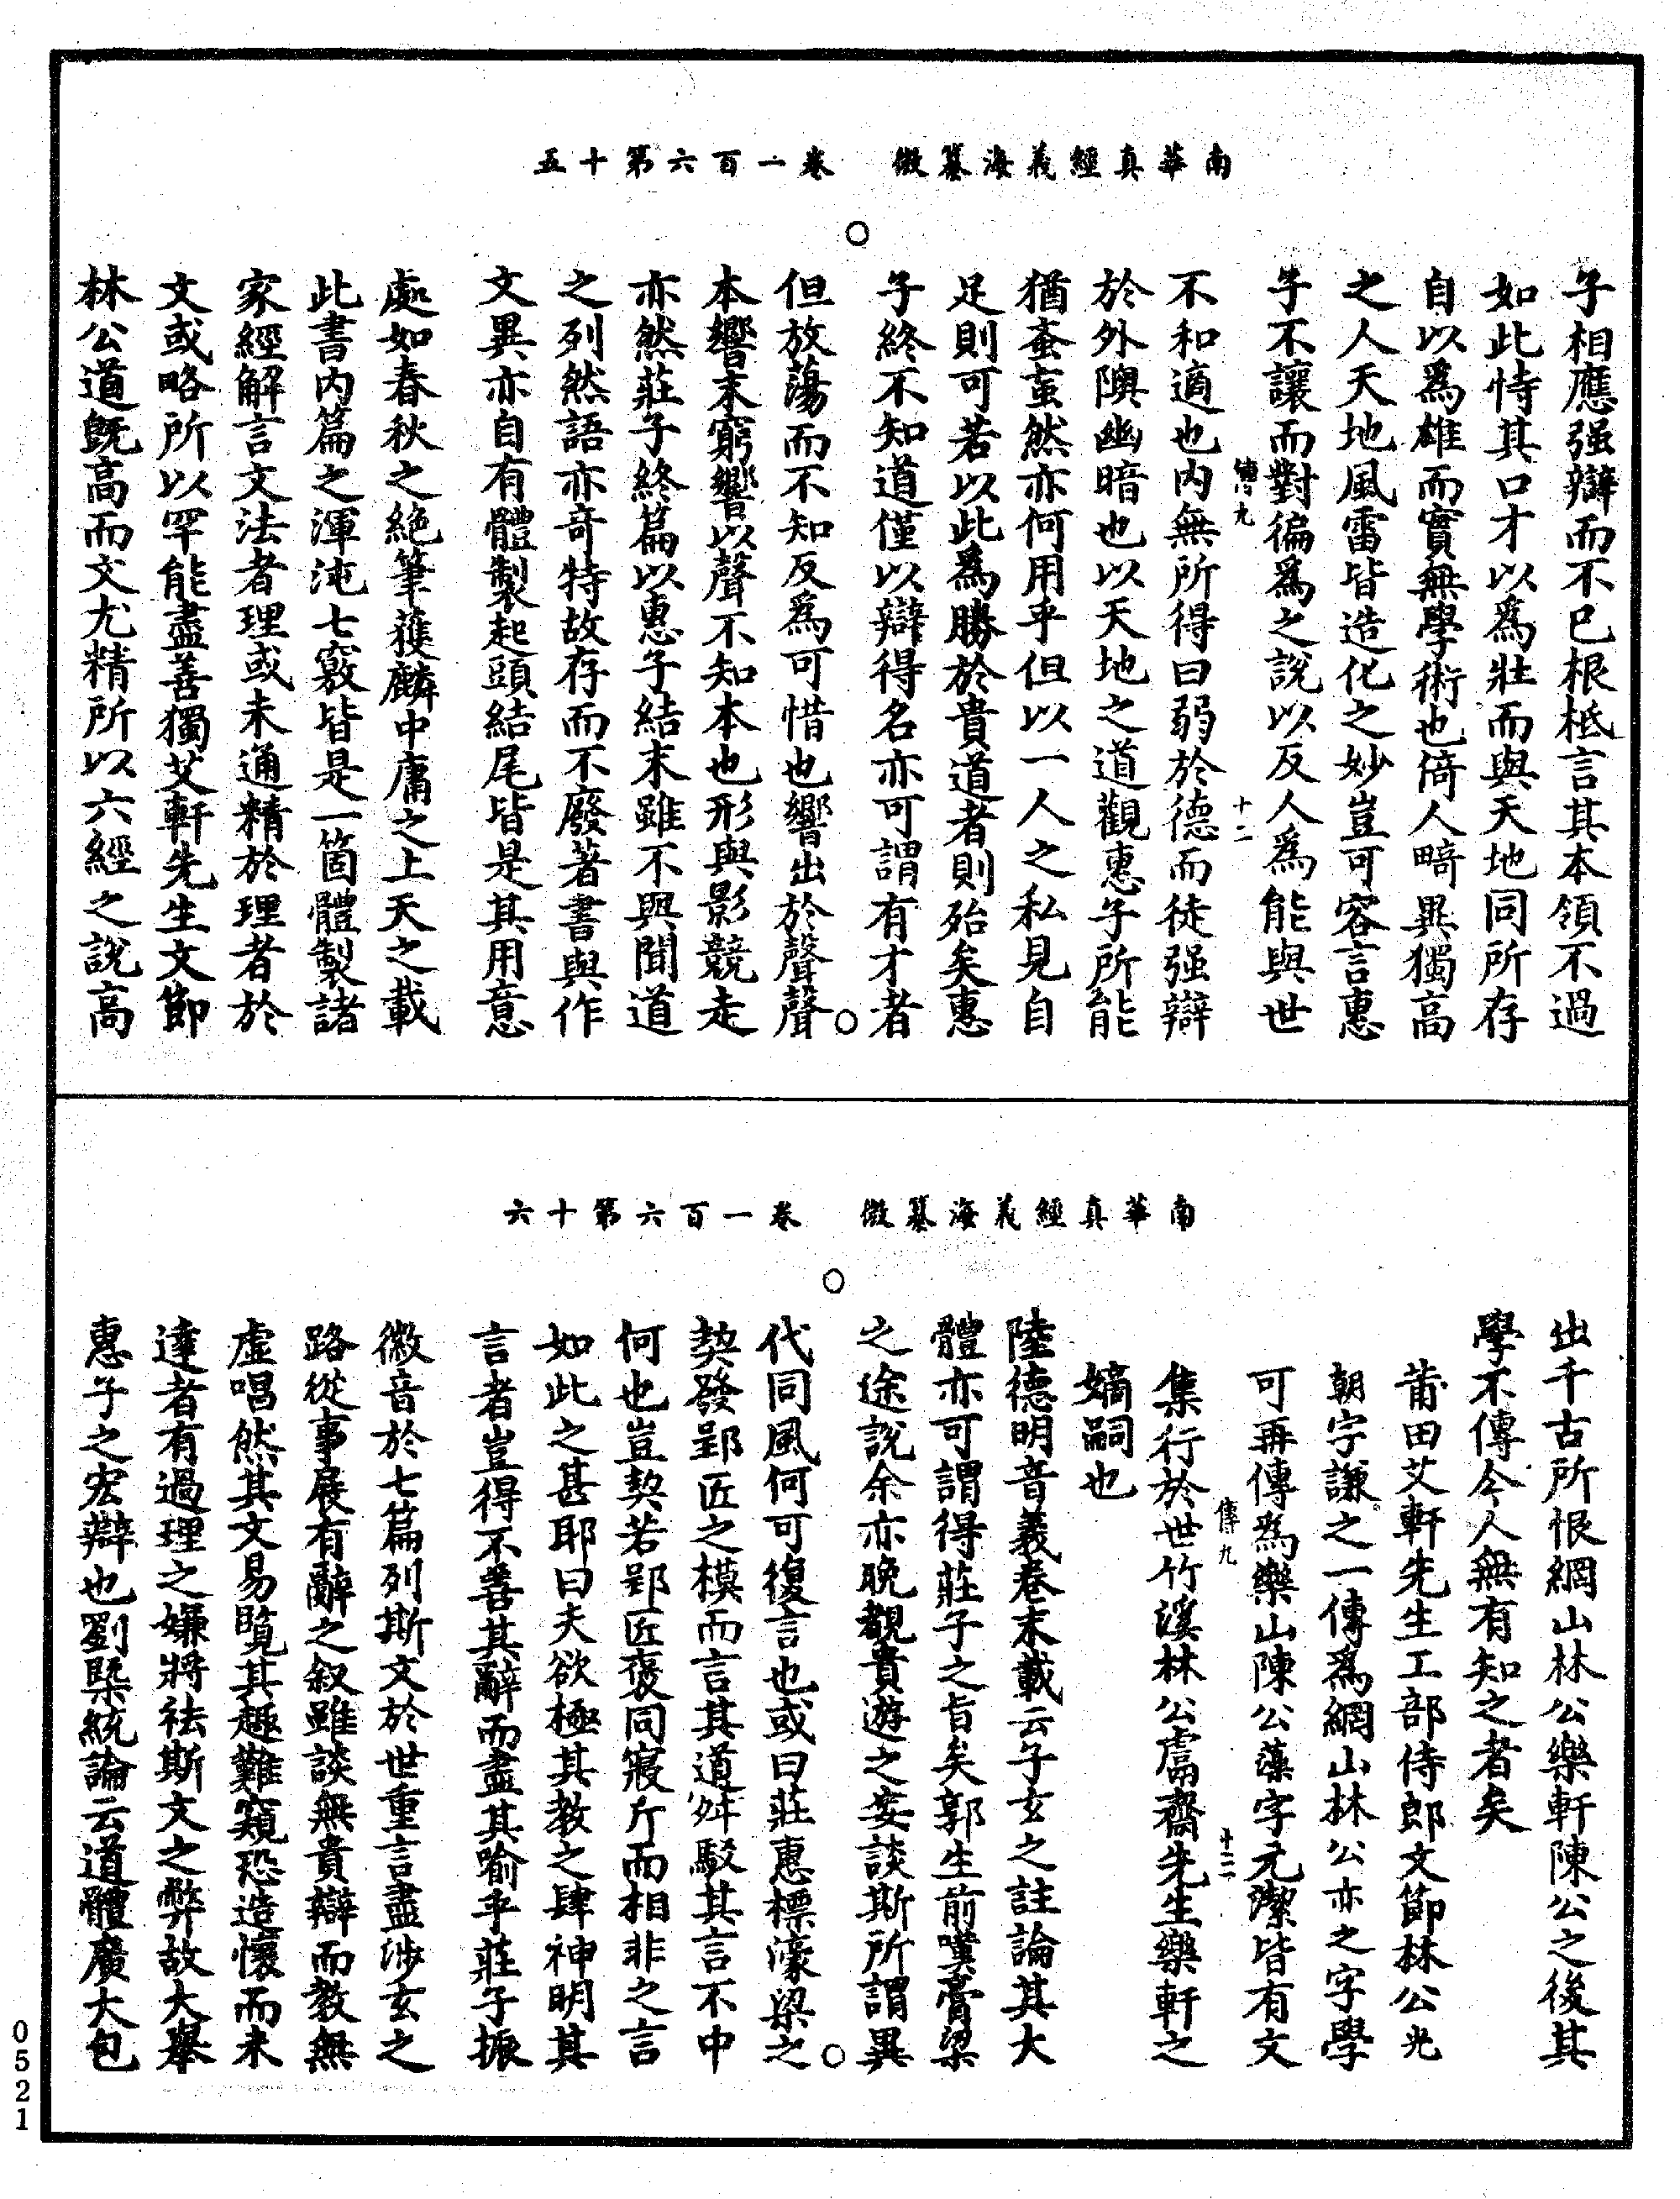 南華真經義海纂微　卷一百六第十五
子相應强辯而不已根柢言其本領不過
如此恃其口才以爲壯而與天地同所存
自以爲雄而實無學術也倚人畸異獨高
之人天地風雷皆造化之妙豈可容言惠
子不讓而對徧爲之說以反人爲能與世
十二
不和適也內無所得曰弱於德而徒强辯
於外隩幽暗也以天地之道觀惠子所能
猶蚉䖟然亦何用乎但以一人之私見自
足則可若以此爲勝於貴道者則殆矣惠
子終不知道僅以辯得名亦可謂有才者
但放蕩而不知反爲可惜也響出於聲聲
本響末窮響以聲不知本也形與影競走
亦然莊子終篇以惠子結末雖不與聞道
之列然語亦竒特故存而不廢著書與作
文異亦自有體製起頭結尾皆是其用意
處如春秋之絶筆獲麟中庸之上天之載
此書内篇之渾沌七竅皆是一箇體製諸
家經解言文法者理或未通精於理者於
文或略所以罕能盡善獨艾軒先生文節
林公道旣高而文尤精所以六經之說高
南華真經義海纂微　卷一百六第十六
出千古所恨網山林公樂軒陳公之後其
學不傳今人無有知之者矣
莆田艾軒先生工部侍郎文節林公光
朝字謙之一傳爲網山林公亦之字學
可再傳爲樂山陳公藻字元潔皆有文
傳九
十三
集行於世竹溪林公鬳齋先生樂軒之
嫡嗣也
陸德明音義卷末載云子玄之註論其大
體亦可謂得莊子之旨矣郭生前嘆膏粱
之途說余亦晚覩貴遊之妄談斯所謂異
代同風何可復言也或曰莊惠標濠梁之
契發郢匠之模而言其道舛駁其言不中
何也豈契若郢匠褒同寢斤而相非之言
如此之甚耶曰夫欲極其教之肆神明其
言者豈得不善其辭而盡其喻乎莊子振
徽音於七篇列斯文於世重言盡涉玄之
路從事展有辭之叙雖談無貴辯而教無
虚唱然其文易覧其趣難窺恐造懷而未
達者有過理之嫌將祛斯文之弊故大舉
惠子之宏辯也劉槩統論云道體廣大包
0521